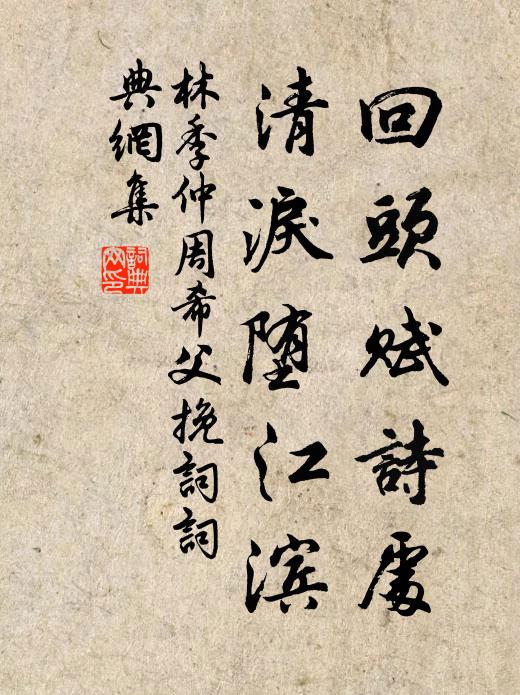 回頭賦詩處
清淚堕江滨
林季仲周希父挽詞詞
典網集
詞典
网印